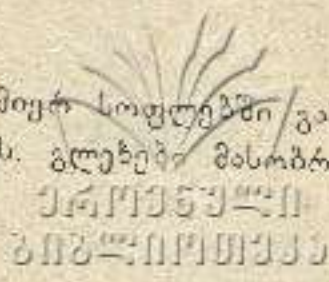 მიერ სოფლებში გა
ს. გლეხები მასობრ
ეროვნული
ბიბლიოთეკა